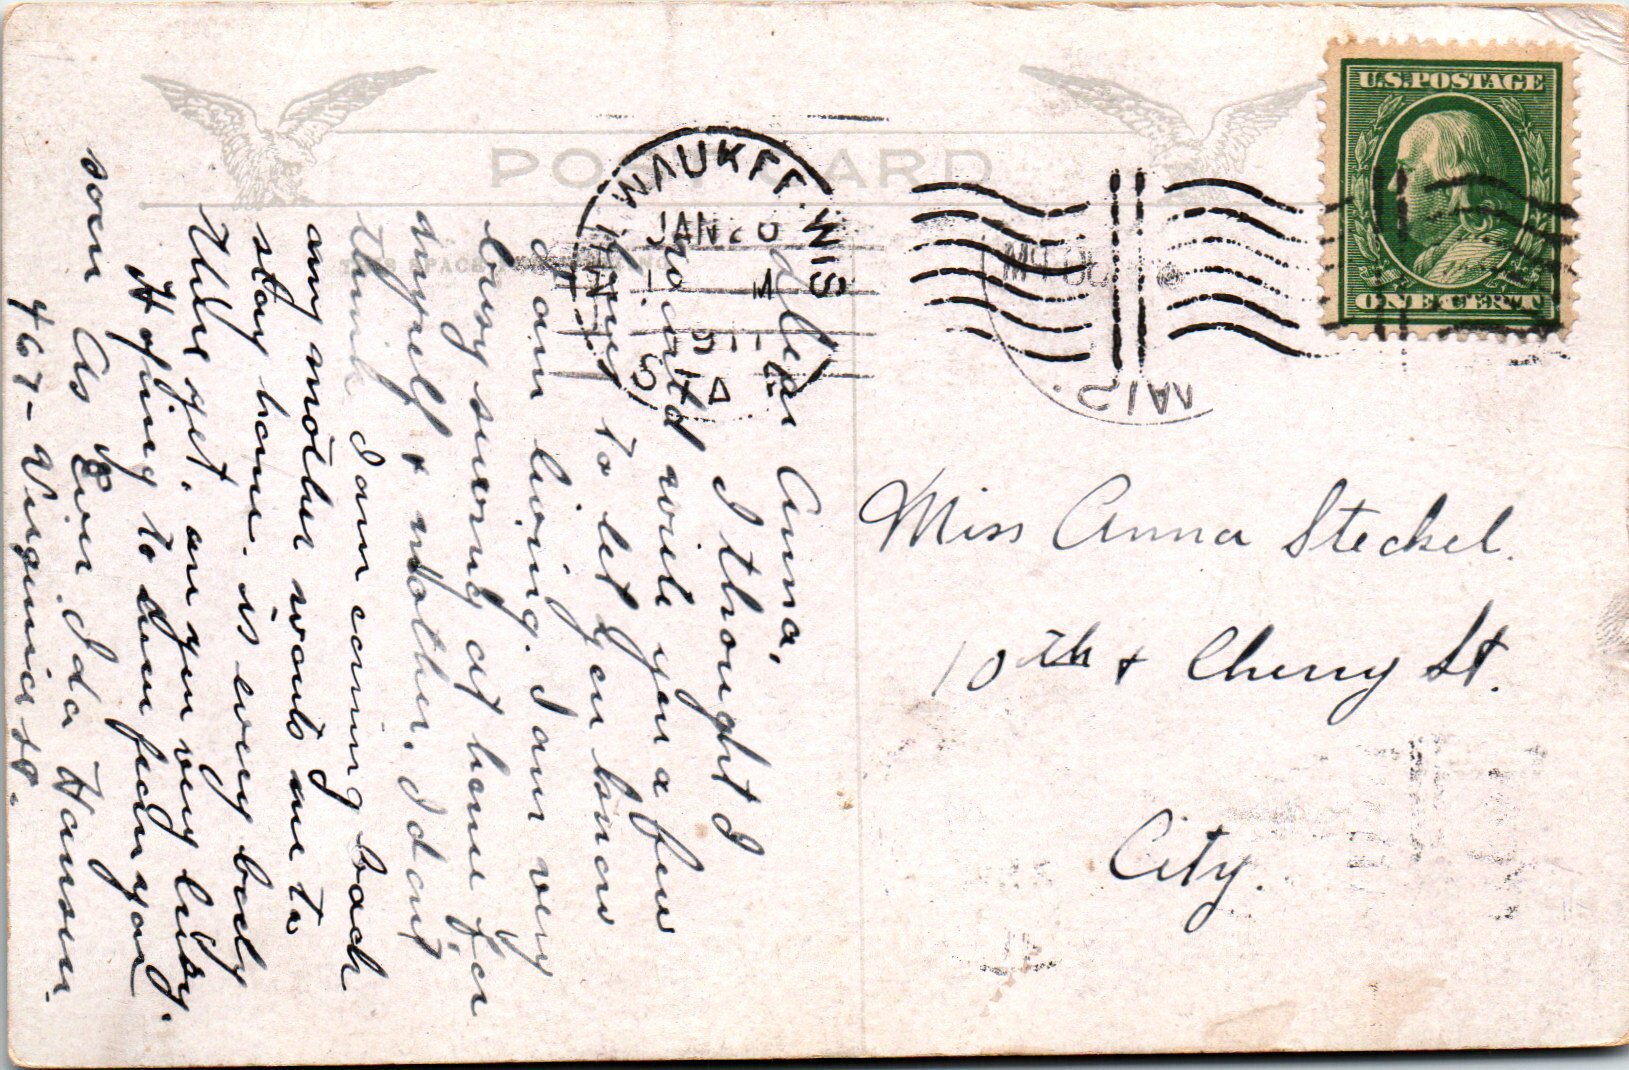 POST CARD
MILWAUKEE, WIS
JAN 20
U.S. POSTAGE
ONE CENT
Dear Anna,
I thought I
would write you a few
lines to let you know
I am living. I am very
busy sewing at home for
myself & mother. I dont
think I am coming back
any mother wants me to
stay home. is every body
there yet. are you very busy.
Hoping to hear from you
soon As Ever Ida Hanson.
467 - Virginia St.
Miss Anna Steckel.
10th & Cherry St.
City.